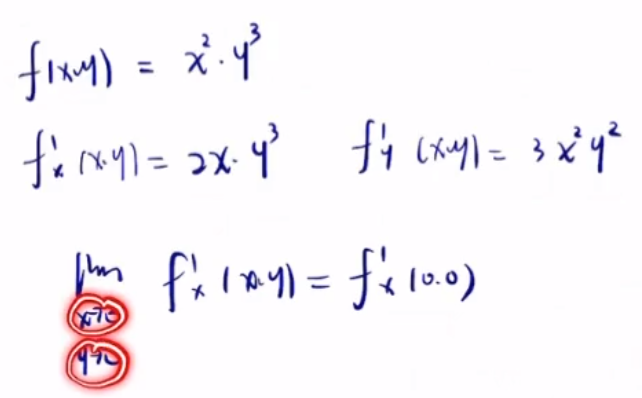 f(x,y) = x²·y³
f'ₓ(x,y) = 2x·y³ f'y(x,y) = 3x²y²
lim f'ₓ(x,y) = f'ₓ(0,0)
x→0
y→0